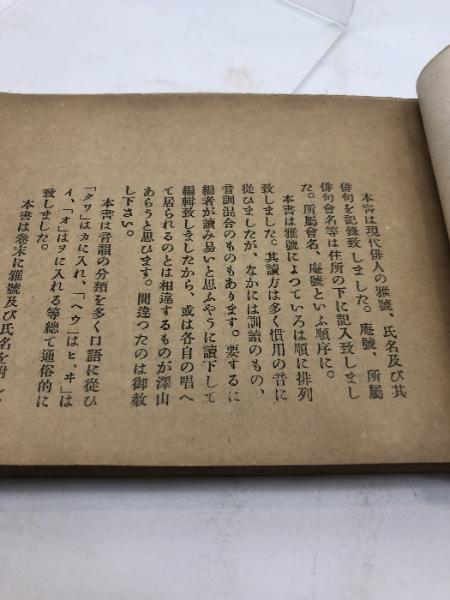 本書は現代俳人の雅號、氏名及び其
俳句を記錄致しました。庵號、所屬
俳句會名等は住所の下に記入致しまし
た。所屬會名、庵號といふ順序に。
本書は雅號によつていろは順に排列
致しました。其讀方は多く慣用の音に
從ひましたが、なかには訓讀のもの、
音訓混合のものもあります。要するに
編者が讀み易いと思ふやうに讀下して
編輯致しましたから、或は各自の唱へ
て居られるのとは相違するものが澤山
あらうと思ひます。間違つたのは御赦
し下さい。
本書は音韻の分類を多く口語に從ひ
「クワ」はカに入れ、「ヘウ」はヒ、ヰ」は
イ、「オ」はヲに入れる等總て通俗的に
致しました。
本書は卷末に雅號及び氏名を